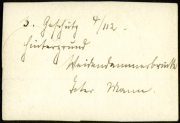 5. Geschütz 4/112.
Hintergrund
Weidendammerbrücke
Toter Mann.